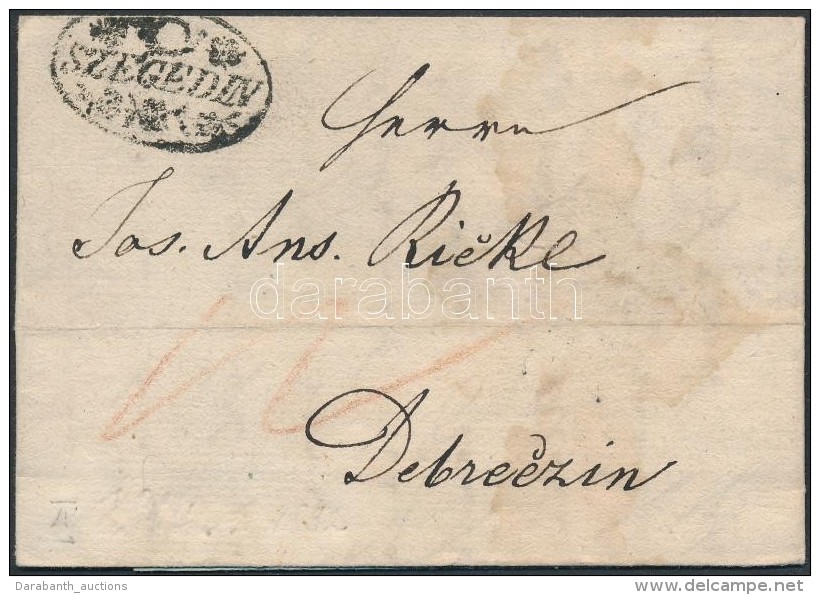 SZEGEDIN
Herrn
Jos. Ans. Ričke
darabanth
Debrečzin
Darabanth_auctions
delcampe.net